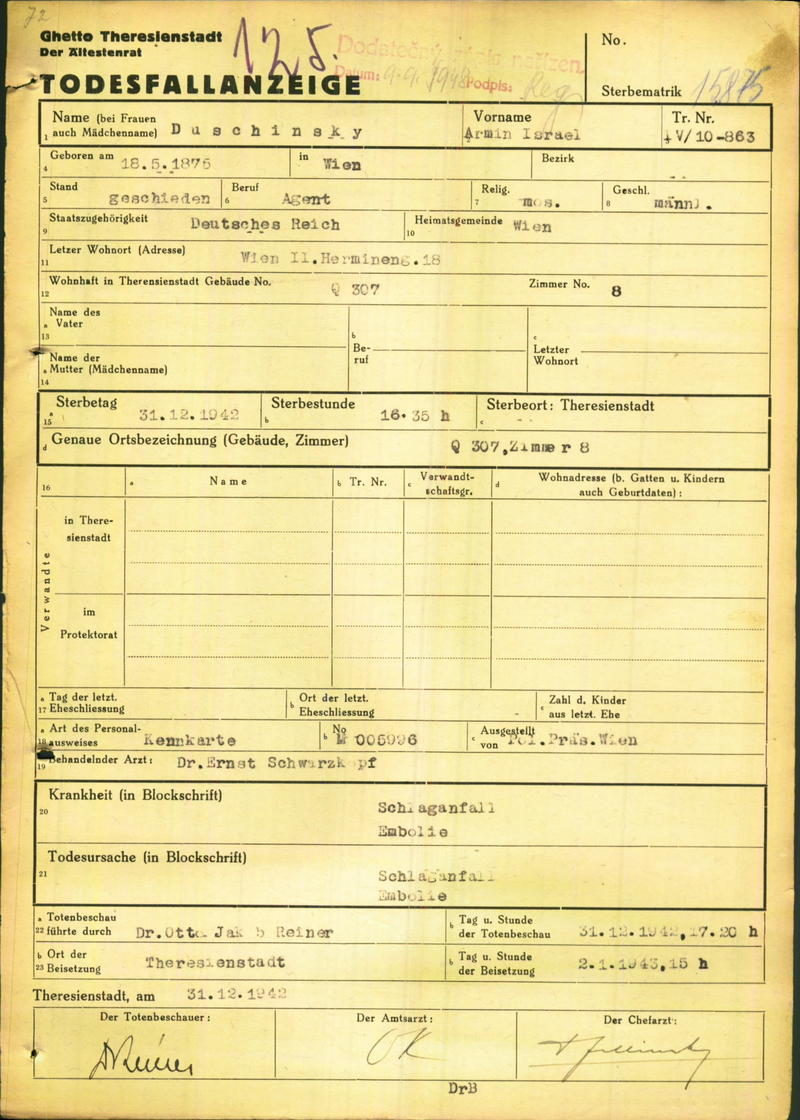 72
Ghetto Theresienstadt
Der Ältestenrat
125.
Dodatečný zápis nařízen.
Datum: 9.9. 1948 Podpis:
No.
TODESFALLANZEIGE
Sterbematrik 15875
Name (bei Frauen
1 auch Mädchenname) Duschinsky
Vorname
Armin Israel
Tr. Nr.
IV/10-863
4 Geboren am 18.5.1875 in Wien Bezirk - -
5 Stand geschieden
6 Beruf Agent
7 Relig. mos.
8 Geschl. männl.
9 Staatszugehörigkeit Deutsches Reich
10 Heimatsgemeinde Wien
11 Letzer Wohnort (Adresse) Wien II.Hermineng.18
12 Wohnhaft in Therensienstadt Gebäude No. Q 307 Zimmer No. 8
Name des
a Vater
13
b
Be-
ruf
c
Letzter
Wohnort
Name der
a Mutter (Mädchenname)
14
a 15 Sterbetag 31.12.1942
b Sterbestunde 16.35 h
c Sterbeort: Theresienstadt
- -
d Genaue Ortsbezeichnung (Gebäude, Zimmer) Q 307,Zimmer 8
16 a Name b Tr. Nr. c Verwandt-
schaftsgr.
d Wohnadresse (b. Gatten u. Kindern
auch Geburtdaten):
Verwandte
in There-
sienstadt
im
Protektorat
a Tag der letzt.
17 Eheschliessung
b Ort der letzt.
Eheschliessung -
c Zahl d. Kinder
aus letzt. Ehe
a Art des Personal-
18 ausweises Kennkarte
b No 005996
c Ausgestellt
von Pol.Präs.Wien
19 Behandelnder Arzt: Dr.Ernst Schwarzkopf
Krankheit (in Blockschrift)
20
Schlaganfall
Embolie
Todesursache (in Blockschrift)
21
Schlaganfall
Embolie
a Totenbeschau
22 führte durch Dr.Otto Jakob Reiner
b Tag u. Stunde
der Totenbeschau 31.12.1942,17.20 h
b Ort der
23 Beisetzung Theresienstadt
b Tag u. Stunde
der Beisetzung 2.1.1943,15 h
Theresienstadt, am 31.12.1942
Der Totenbeschauer:
Der Amtsarzt:
Der Chefarzt:
DrReiner
OK
DrB